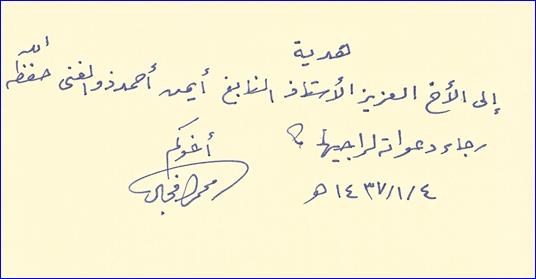 هدية
إلى الأخ العزيز الأستاذ النابغ أيمن أحمد ذو الغنى حفظه الله
رجاء دعواته لراجيها
أخوكم
١٤٣٧/١/٤ هـ